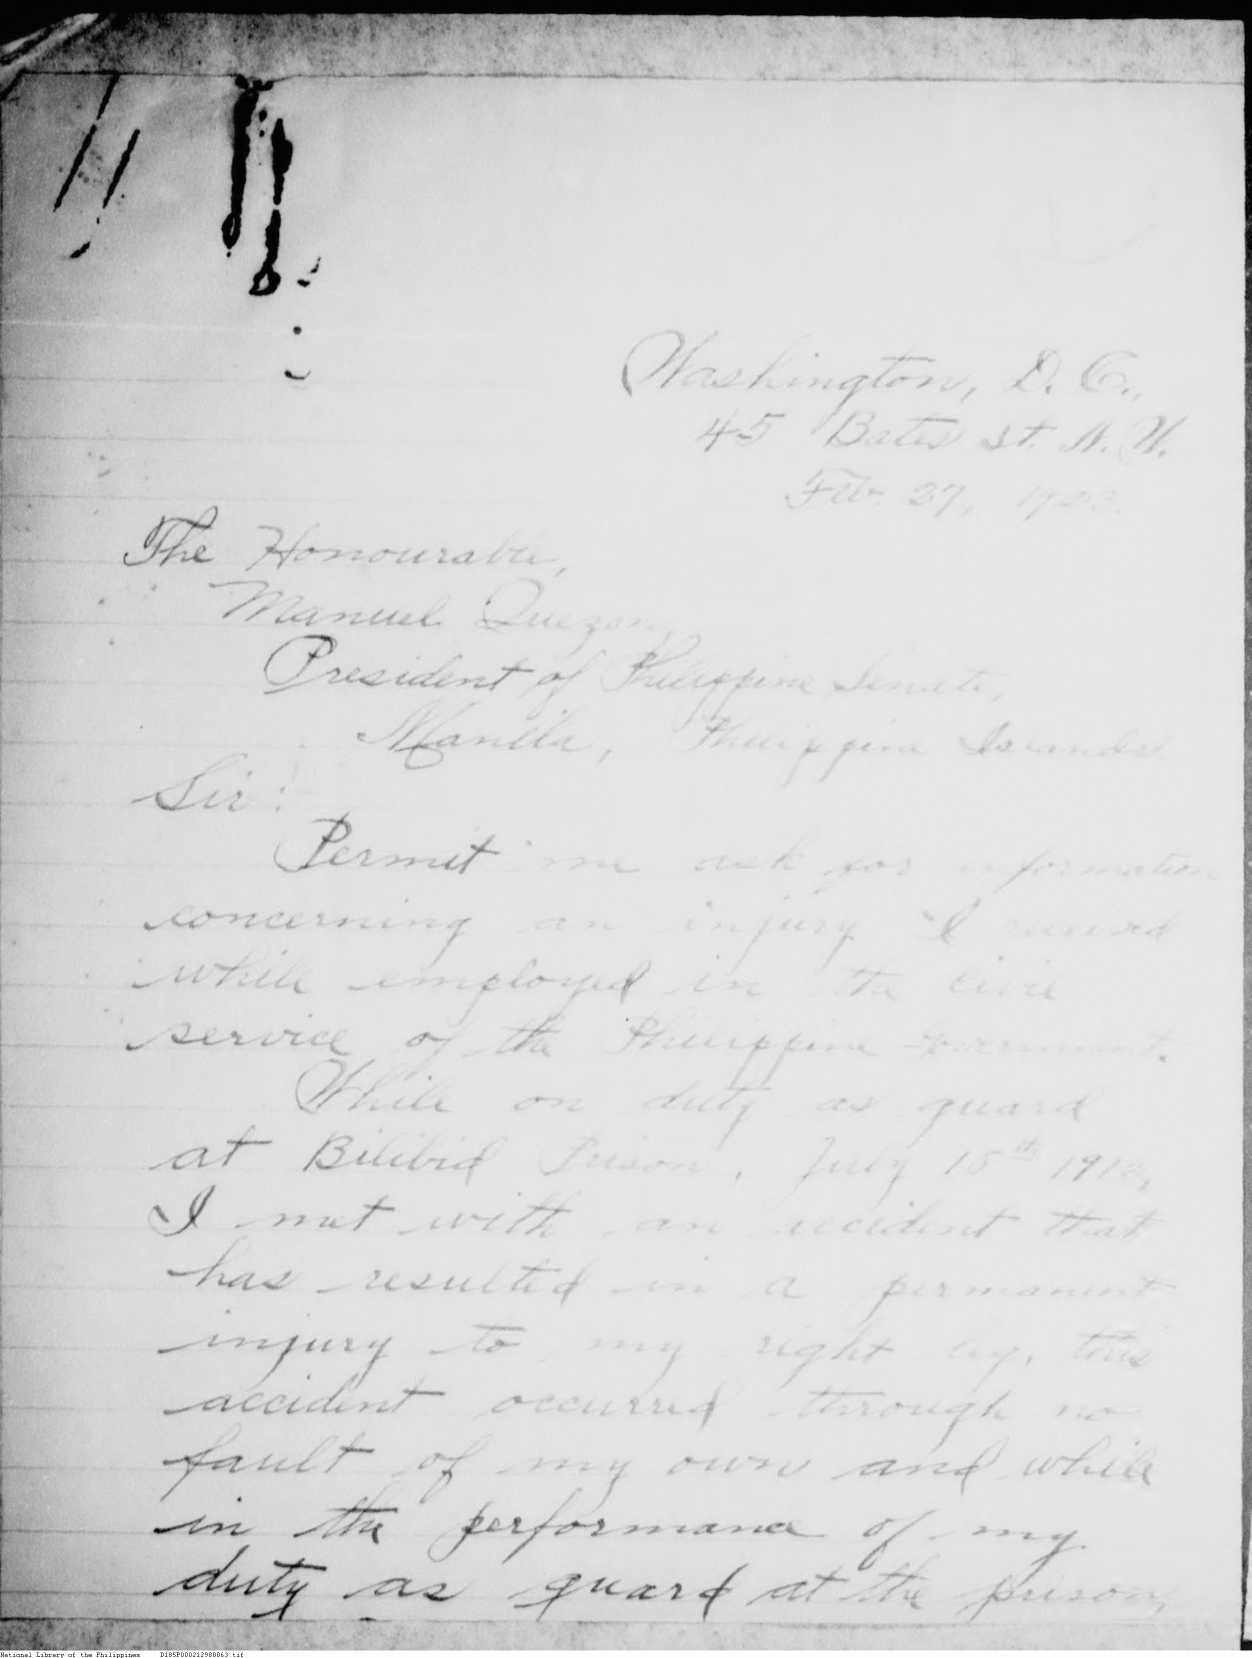 Washington, D. C.,
45 Bates St. N. W.
Feb. 27, 1923.
The Honourable,
Manuel Quezon,
President of Philippine Senate,
Manila, Philippine Islands
Sir:
Permit me ask for information
concerning an injury I received
while employed in the civil
service of the Philippine Government.
While on duty as guard
at Bilibid Prison, July 15th
I met with an accident that
has resulted in a permanent
injury to my right leg, this
accident occurred through no
fault of my own and while
in the performance of my
duty as guard at the prison,
National Library of the Philippines D185P000212980063.tif